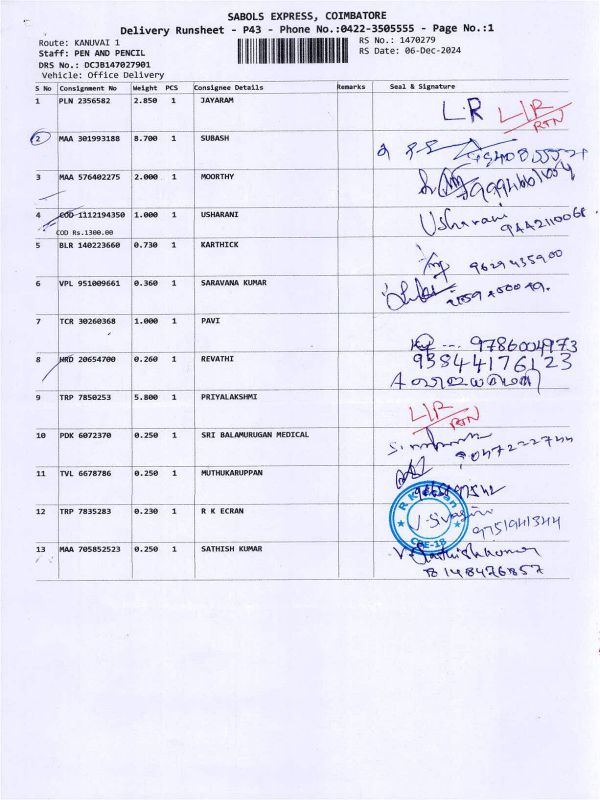 SABOLS EXPRESS, COIMBATORE
Delivery Runsheet - P43 - Phone No.:0422-3505555 - Page No.:1
Route: KANUVAI 1
RS No.: 1470279
Staff: PEN AND PENCIL
RS Date: 06-Dec-2024
DRS No.: DCJB147027901
Vehicle: Office Delivery
S No Consignment No Weight PCS Consignee Details Remarks Seal & Signature
1 PLN 2356582 2.850 1 JAYARAM L.R L/R RTN
2 MAA 301993188 8.700 1 SUBASH
3 MAA 576402275 2.000 1 MOORTHY
4 COD 1112194350 1.000 1 USHARANI Usharani 9442110068
COD Rs.1300.00
5 BLR 140223660 0.730 1 KARTHICK 9629435900
6 VPL 951009661 0.360 1 SARAVANA KUMAR
7 TCR 30260368 1.000 1 PAVI 9786004973
8 HRD 20654700 0.260 1 REVATHI 93844176123
9 TRP 7850253 5.800 1 PRIYALAKSHMI L/R RTN
10 PDK 6072370 0.250 1 SRI BALAMURUGAN MEDICAL
11 TVL 6678786 0.250 1 MUTHUKARUPPAN
12 TRP 7835283 0.230 1 R K ECRAN J. Sivagini 9751941344
CBE-18
13 MAA 705852523 0.250 1 SATHISH KUMAR V. Sathishkumar
8148476857